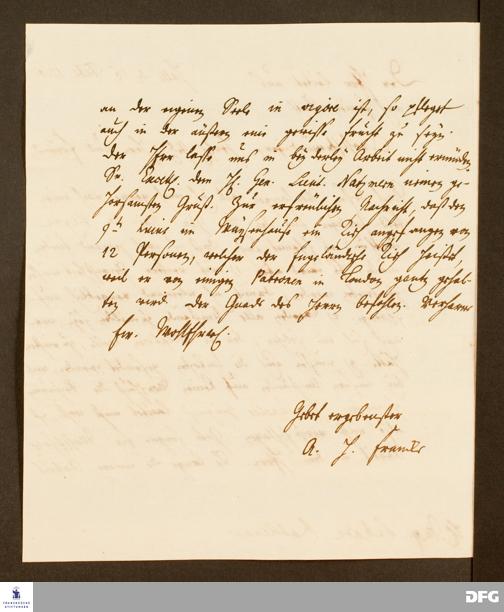 an der eignen Seele in vigore ist, so pfleget
auch in der äusern eine gewisse Frucht zu seyn.
Der Herr lasse uns in beyderley Arbeit nicht ermüden.
Sr. Excell. dem H. Gen. Lieut. Natzmern meinen ge-
horsamsten Gruß. Zur erfreulichen Nachricht, daß den
9 hujus im Wäysenhause ein Tisch angefangen von
12 Personen, welcher der Engeländische Tisch heisset,
weil er von einigen Patronen in London gantz gehal-
ten wird. Der Gnade des Herrn befohlen. Verharre
Ew. Wollehrw.
Gebet ergebenster
A. H. Francke
FRANCKESCHE
STIFTUNGEN
DFG